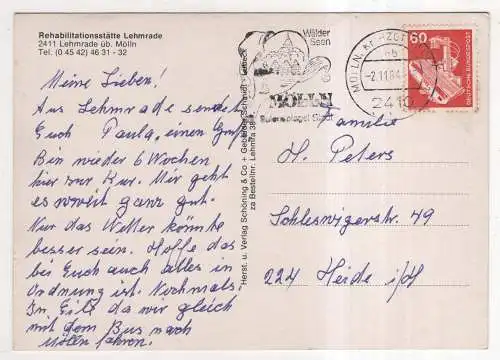 Rehabilitationsstätte Lehmrade
2411 Lehmrade üb. Mölln
Tel. (0 45 42) 46 31 - 32
Meine Lieben!
Aus Lehmrade sendet
Euch Paula, einen Gruß
Bin wieder 6 Wochen
hier zur Kur. Mir geht
es soweit ganz gut.
Nur das Wetter könnte
besser sein. Hoffe das
bei Euch auch alles in
Ordnung ist. Nochmals
In Eile da wir gleich
mit dem Bus nach
Mölln fahren.
Herst. u. Verlag Schöning & Co + Gebrüder Schmidt - Lübeck
Bestellnr.
Wälder
Seen
MÖLLN
Eulenspiegel Stadt
MÖLLN, Kr
-2.11.84
2410
60
DEUTSCHE BUNDESPOST
Familie
H. Peters
Schleswigerstr. 49
224 Heide i/H